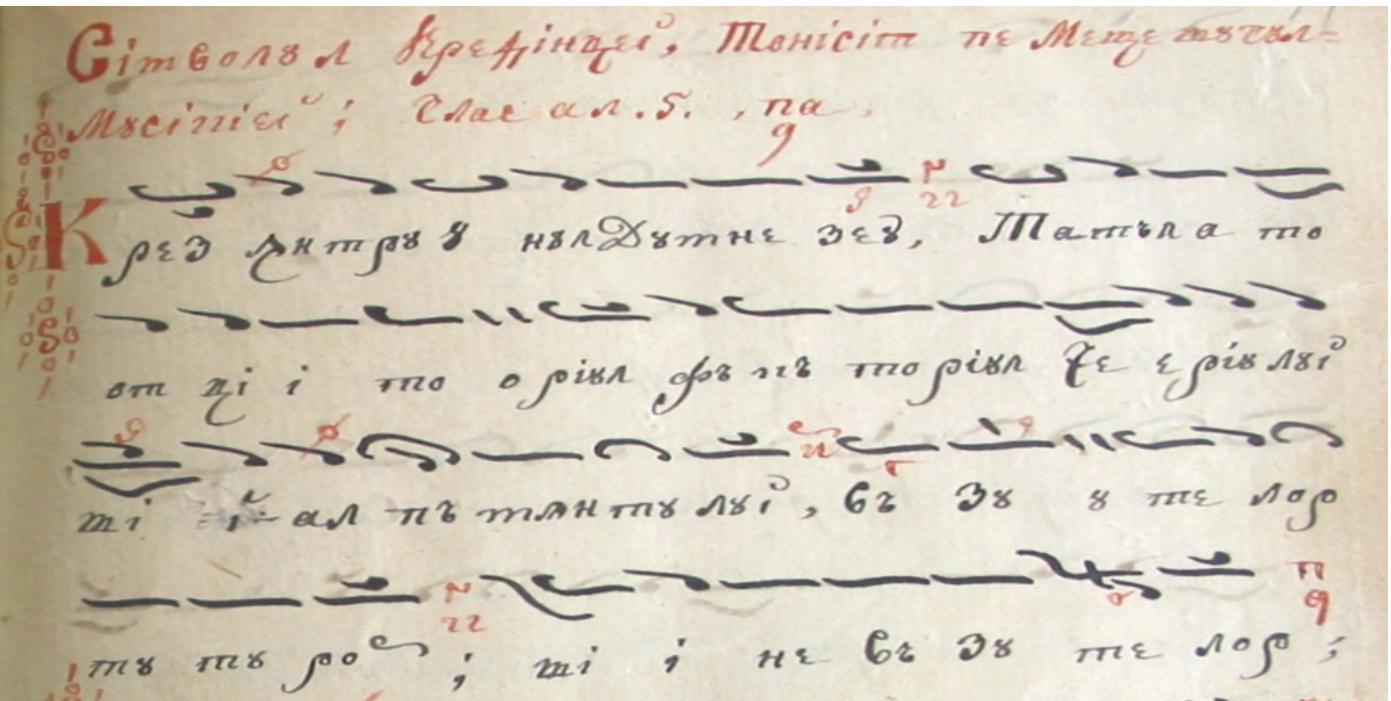 Сімволꙋл Кредінцеї, Тонісіт пе Мещешꙋгꙋл=
Мꙋсікіеї ; Глас ал. 5. , па
Крез ꙟнтрꙋ ꙋнꙋл Дꙋмне зеꙋ, Татъл а то
от ці і то о ріꙋл фъ къ торіꙋл че е рюлꙋї
ші ї ал пъ мѫнтꙋ лꙋї , въ зꙋ ꙋ те лор
тꙋ тꙋ ро ; ші і не въ зꙋ те лор ;